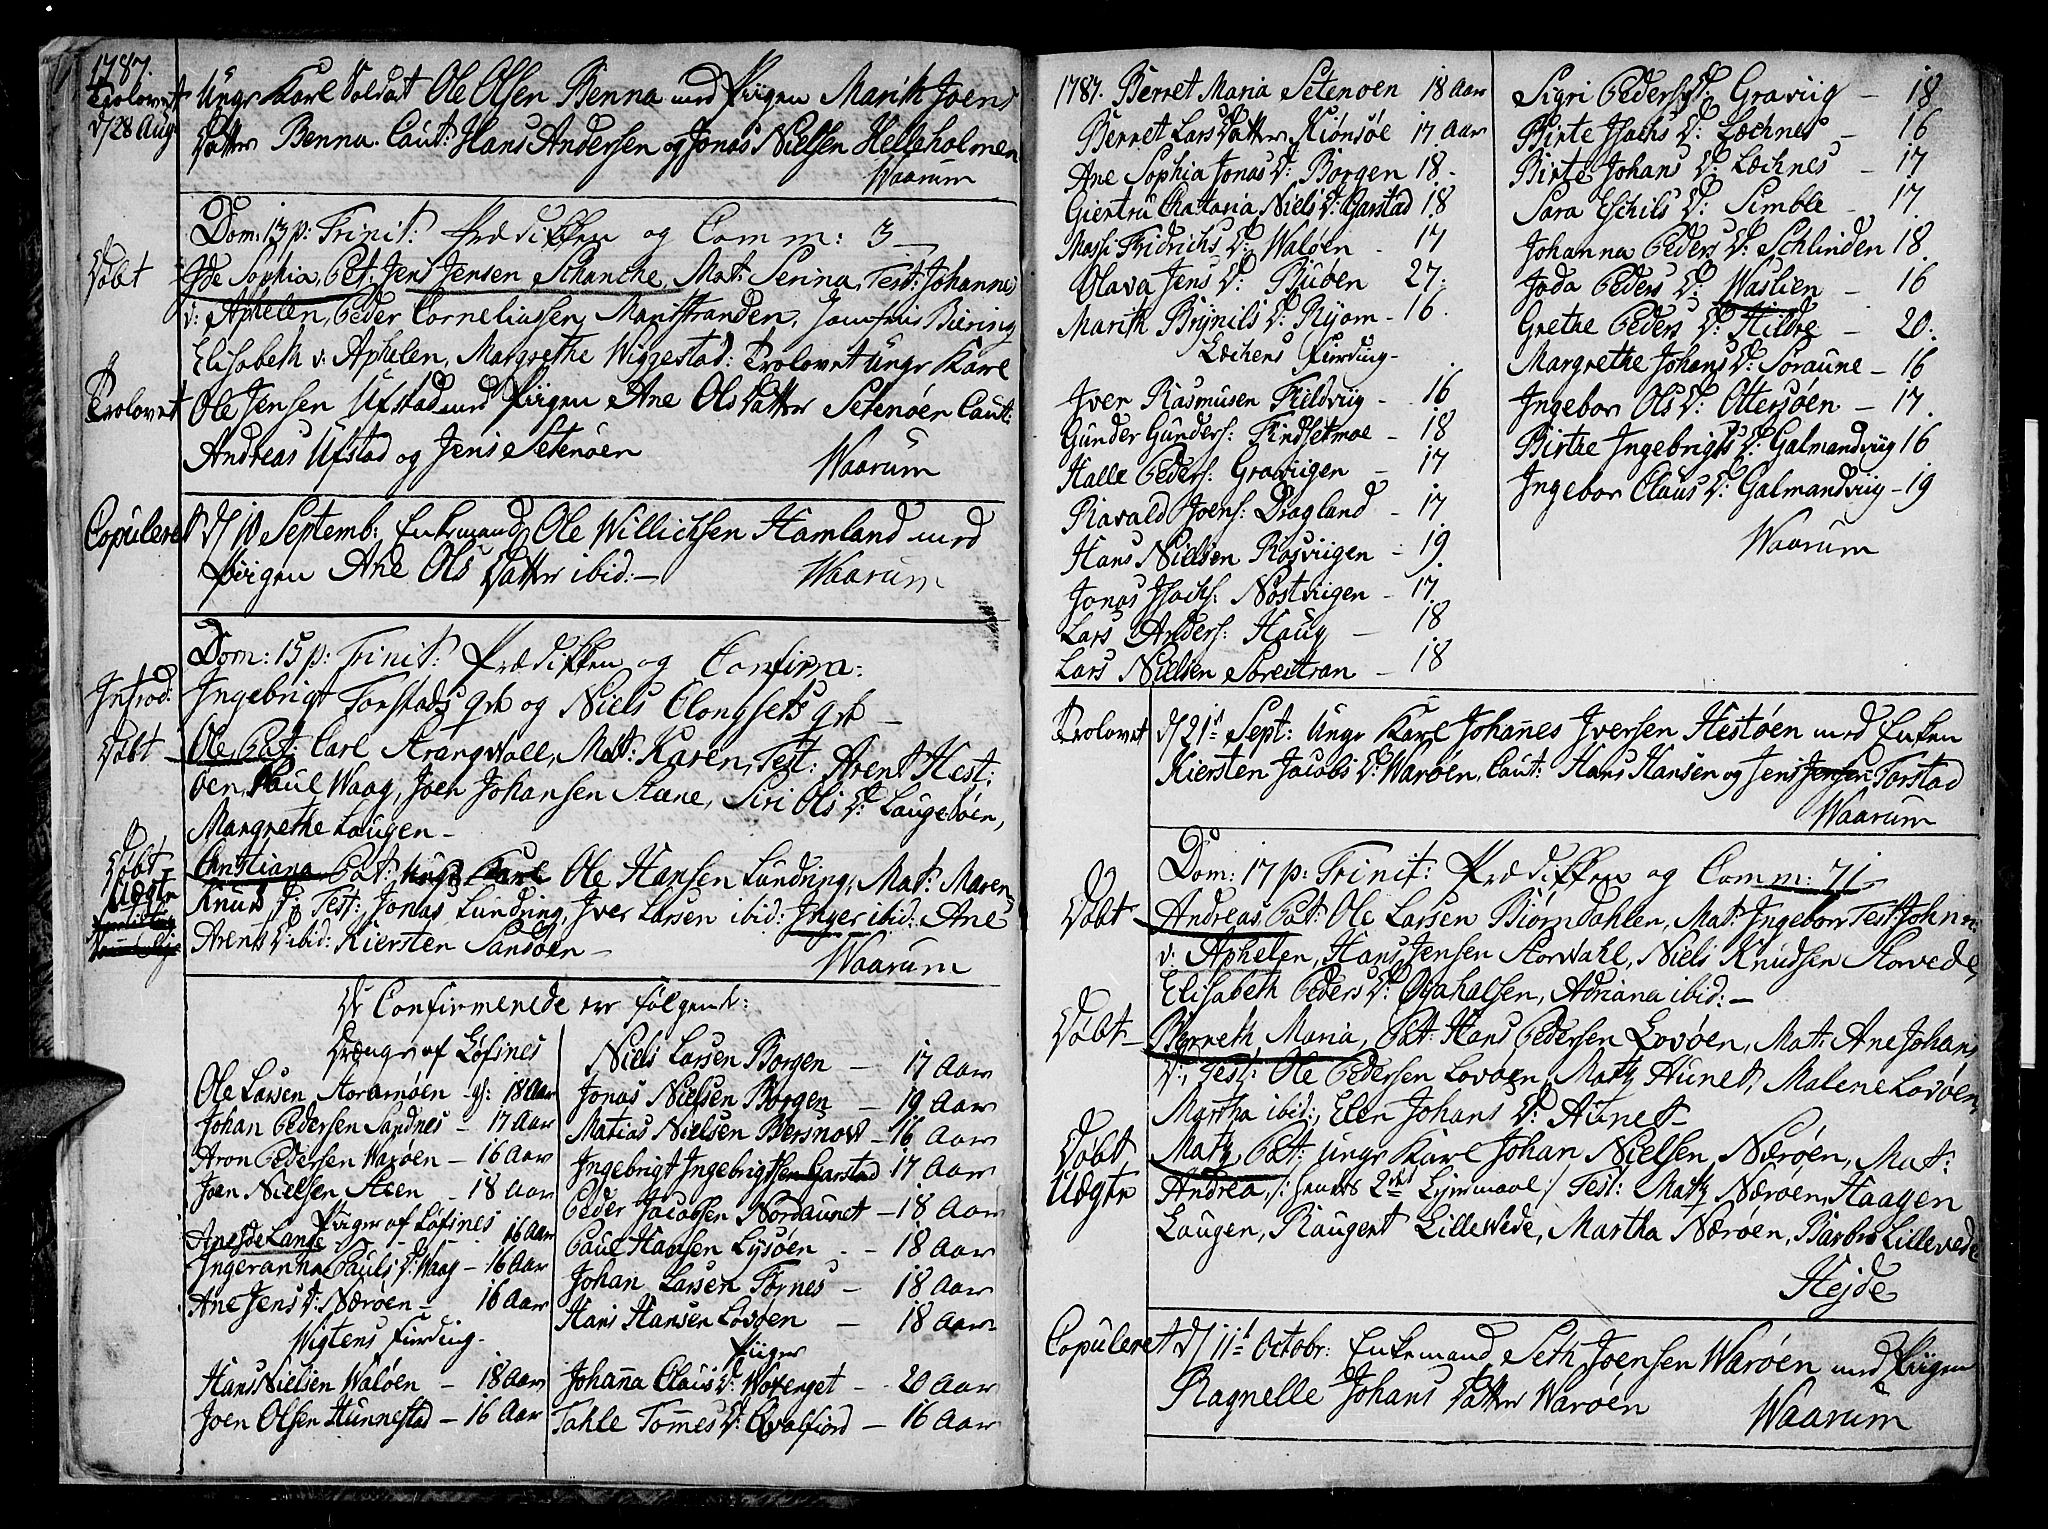 1787.
Trolovet Ungr Karl Soldat Ole Olsen Benna med Piigen Marith Joens
d/28 Aug: Datter Benna. Caut: Hans Andersen og Jonas Nielsen Helleholmen
Waarum
Dom: 13 p: Trinit: Prædikken og Comm: 3
Døbt Ide Sophia, Pat: Jens Jensen Schanche, Mat: Serina, Test: Johannes
v: Aphelen, Peder Corneliussen, Mariestranden, Biering
Elisabeth v: Aphelen, Margrethe Wiggestad: Trolovet Ungr Karl
Trolovet Ole Jensen Ufstad med Piigen Ane Ols Datter Setenøen Caut:
Andreas Ufstad og Jens Setenøen
Waarum
Copuleret d/10 Septemb: Enkemand Ole Willichsen Hamland med
Piigen Ane Ols Datter ibid:—
Waarum
Dom: 15 p: Trinit: Prædikken og Confirm:
Introd: Ingebrigt Forstads qvi og Niels Clongsets qvi —
Døbt Ole, Pat: Carl Strangwoll, Mat: Karen, Test: Arent Hest:
øen, Paul Waag, Joen Johansen Stene, Siri Ols D: Laugeøen,
Margrethe Laugen —
Døbt Christiana Pat: Ungr Karl Ole Hansen Lundring, Mat: Maren
Uægte Knuds D: Test: Jonas Lundring, Iver Larsen ibid: Inger ibid: Ane
Arents D: ibid: Kiersten Sandøen —
Waarum
De Confirmerede ere følgende:
Drenge af Løfines
Ole Larsen Storamøen — 18 Aar
Johan Pedersen Sandnes — 17 Aar
Aron Pedersen Warøen — 16 Aar
Joen Nielsen Steen — 18 Aar
Piiger af Løfines
Ane Ide Lange 16 Aar
Ingeranna Pauls D: Waag — 16 Aar
Ane Jens D: Nærøen — 16 Aar
Wigtens Fierding
Hans Nielsen Waløen — 18 Aar
Joen Olsen Hunnestad — 16 Aar
Niels Larsen Borgen — 17 Aar
Jonas Nielsen Borgen — 19 Aar
Matias Nielsen Bersnow — 16 Aar
Ingebrigt Ingebrigtsen Garstad 17 Aar
Peder Jacobsen Nordaunet — 18 Aar
Paul Hansen Lysøen — 18 Aar
Johan Larsen Tornes — 18 Aar
Hans Hansen Lovøen — 18 Aar
Piiger
Johanna Claus D: Woxenget — 20 Aar
Tahle Tommes D: Qvalfiord — 16 Aar
1787. Berret Maria Setenoen 18 Aar
Berret Lars Datter Kiønsøe 17 Aar
Ane Sophia Jonas D: Borgen 18 —
Giertru Chataria Niels D: Garstad 18
Massi Fridrichs D: Waløen — 17
Olava Jens D: Buøen 27.
Marith Brynils D: Ryom — 16.
Læchens Fierding
Iver Rasmusen Fieldviig — 16
Gunder Gunders: Findsetmoe — 18
Halle Peders: Graviigen — 17
Ravald Joens: Dragland — 17
Hans Nielsen Rosviigen — 19.
Jonas Isachs: Nostviigen — 17
Lars Anders: Haug — 18
Lars Nielsen Soreitran — 18
Sigri Peders D: Graviig — 18
Birte Isachs D: Læchnes — 16
Birte Johans D: Læchnes — 17
Sara Eschils D: Simble — 17.
Johanna Peders D: Schlinden 18.
Joda Peders D: Waslien — 16
Grethe Peders D: Hildre — 20.
Margrethe Johans D: Soraune — 16
Ingebor Ols D: Ottersøen — 17.
Birtæ Ingebrigts D: Galmandviig 16
Ingebor Claus D: Galmandviig — 19
Waarum
Trolovet d/21t Sept: Ungr Karl Johannes Iversen Hestøen med Enken
Kiersten Jacobs D: Warøen, Caut: Hans Hansen og Jens Jensen Forstad
Waarum
Dom: 17 p: Trinit: Prædikken og Comm: 71
Døbt Andreas, Pat: Ole Larsen Biørndahlen, Mat: Ingebor Test: Johan
v: Aphelen, Hans Jensen Storwahl, Niels Knudsen Storvede,
Elisabeth Peders D: Øyahalsen, Adriana ibid: —
Døbt Berreth Maria, Pat: Hans Pedersen Lovøen, Mat: Ane Johans
D:, Test: Ole Pedersen Lovøen, Matz Aunet, Malene Lovøen,
Martha ibid:, Elen Johans D: Aunet
Døbt Matz Pat: Ungr Karl Johan Nielsen Nærøen, Mat:
Uægte Andrea, /: hendes 2det Leiermaal :/ Test: Matz Nærøen, Haagen
Laugen, Raugent Lillewede, Martha Nærøen, Barbro Lillevede
Hejde
Copuleret d/11t Octobr: Enkemand Seth Joensen Warøen med Piigen
Ragnelle Johans Datter Warøen
Waarum